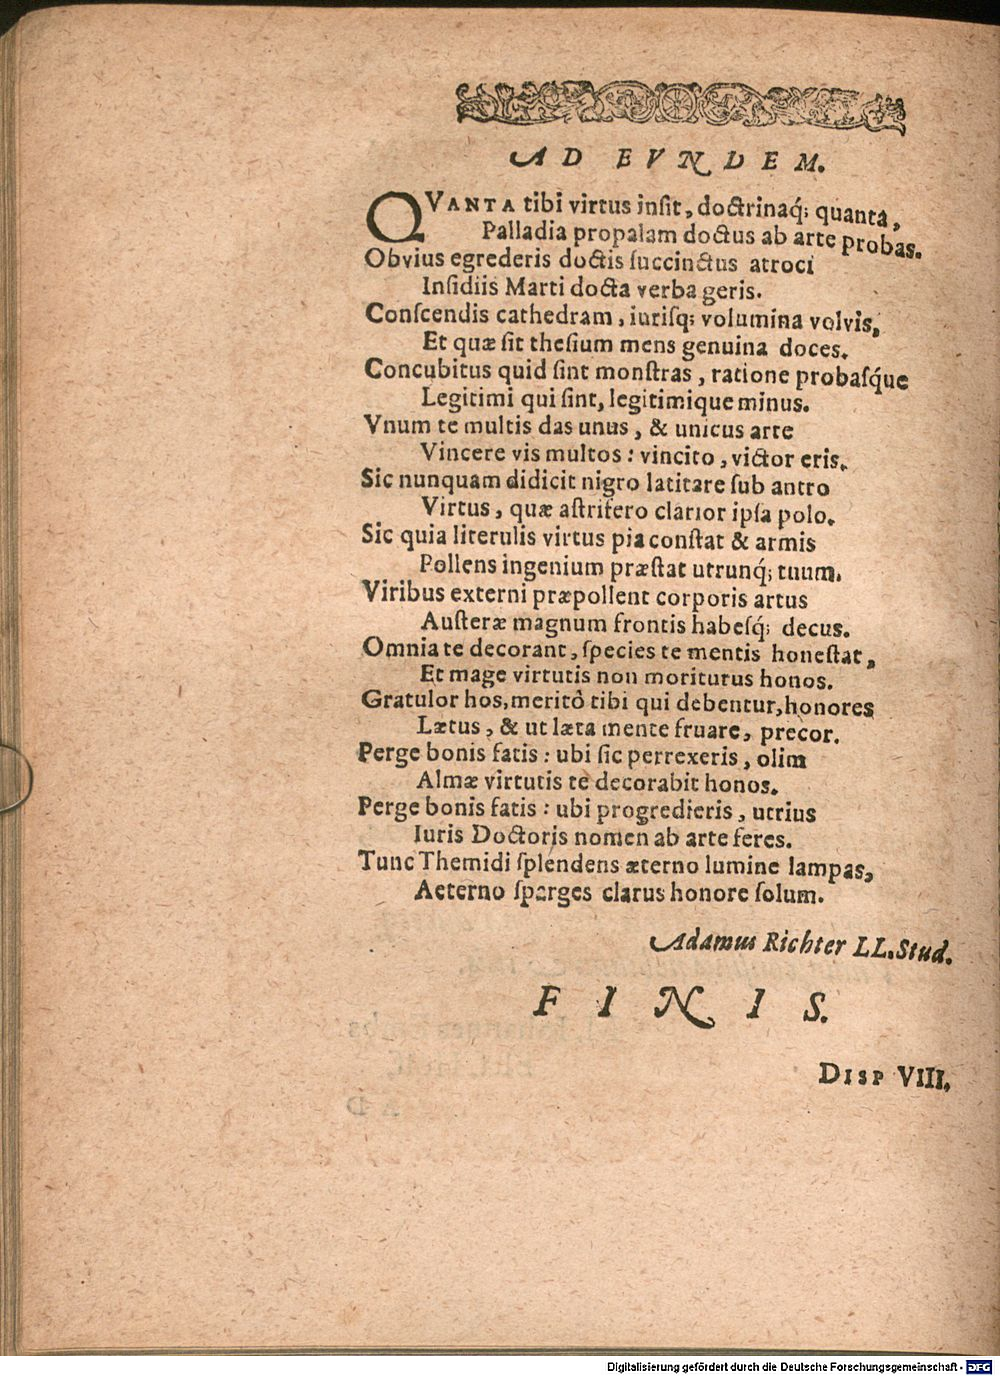 AD EVNDEM.
QVANTA tibi virtus inſit, doctrinaq́; quanta,
Palladia propalam doctus ab arte probas.
Obvius egrederis doctis ſuccinctus atroci
Inſidiis Marti docta verba geris.
Conſcendis cathedram, iuriſq; volumina volvis,
Et quæ ſit theſium mens genuina doces.
Concubitus quid ſint monſtras, ratione probaſq́ue
Legitimi qui ſint, legitimique minus.
Vnum te multis das unus, & unicus arte
Vincere vis multos: vincito, victor eris.
Sic nunquam didicit nigro latitare ſub antro
Virtus, quæ aſtrifero clarior ipſa polo.
Sic quia literulis virtus pia conſtat & armis
Pollens ingenium præſtat utrunq́; tuum.
Viribus externi præpollent corporis artus
Auſteræ magnum frontis habeſq́; decus.
Omnia te decorant, ſpecies te mentis honeſtat,
Et mage virtutis non moriturus honos.
Gratulor hos, meritò tibi qui debentur, honores
Lætus, & ut læta mente fruare, precor.
Perge bonis fatis: ubi ſic perrexeris, olim
Almæ virtutis te decorabit honos.
Perge bonis fatis: ubi progredieris, utrius
Iuris Doctoris nomen ab arte feres.
Tunc Themidi ſplendens æterno lumine lampas,
Aeterno ſparges clarus honore ſolum.
Adamus Richter LL. Stud.
FINIS.
DISP VIII.
Digitalisierung gefördert durch die Deutsche Forschungsgemeinschaft - DFG